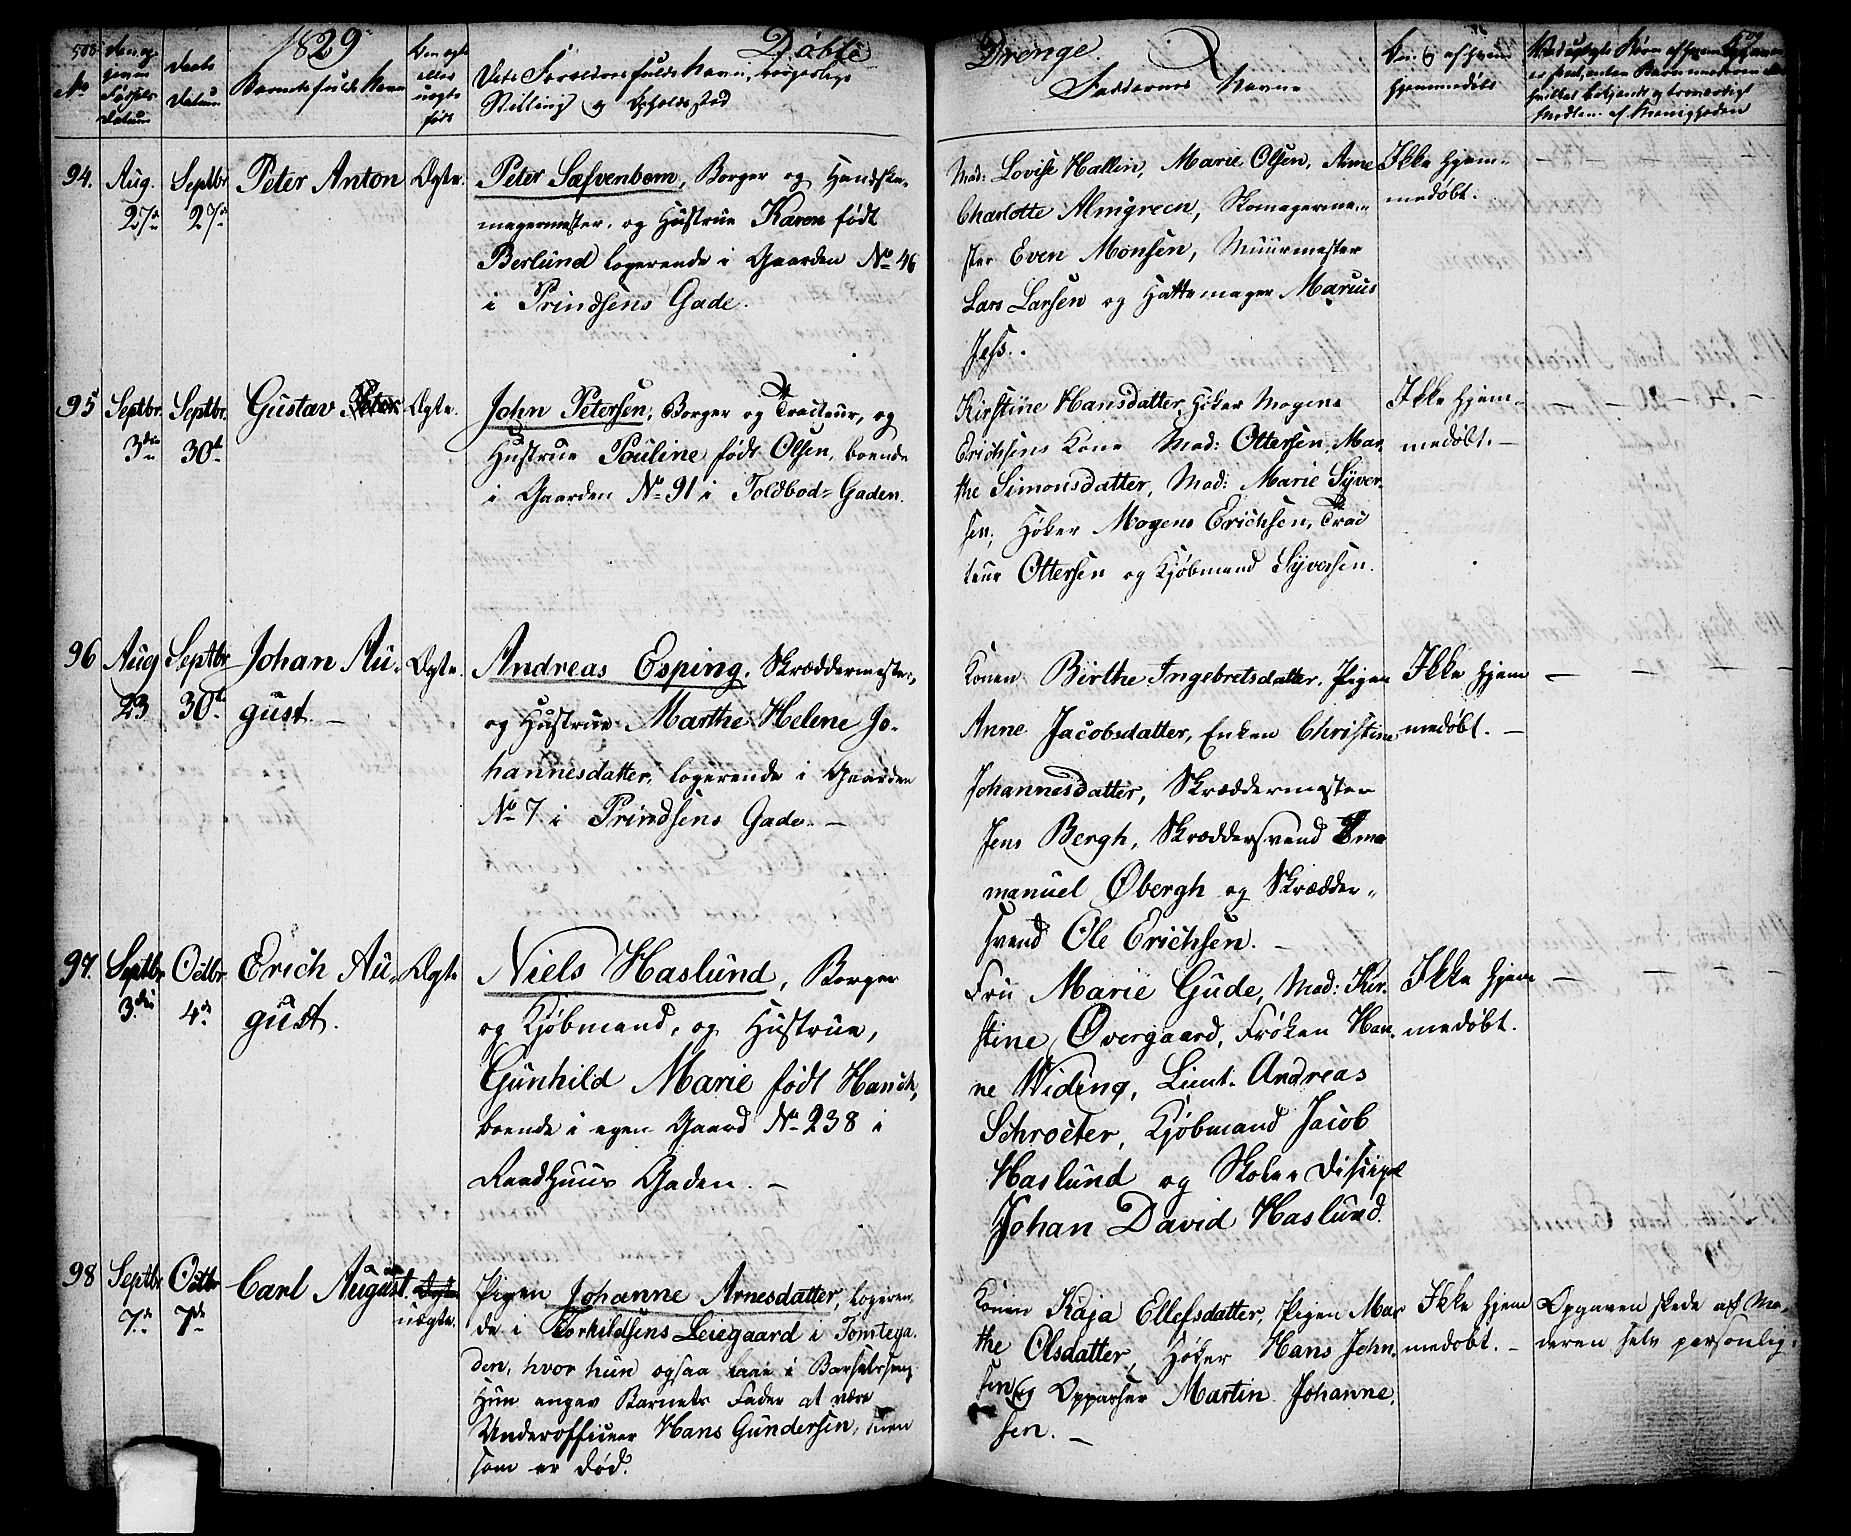 508
1829
Døbte
Drenge.
509
No
Den opgivne Fødsels Datum
Daabs Datum
Barnets fulde Navn
Om ægte eller uægte født
Dets Forældres fulde Navn, borgerlige
Stilling og Opholdssted
Faddernes Navne
hjemmedøbt
Medlem af Menigheden
94.
Aug.
27de
Septbr
27de
Peter Anton
Ægte.
Peter Sæfvenbom, Borger og Handske-
magermester, og Hustrue Karen født
Berlund logerende i Gaarden No 46
i Prindsens Gade.
Mad: Lovise Hallin, Marie Olsen, Anne
Charlotte Almgreen, Skomagerme-
ster Even Monsen, Muurmester
Lars Larsen og Hattemager Marius
Jess.
Ikke hjem-
medøbt.
95
Septbr.
3die
Septbr.
30te
Gustav
Ægte.
John Petersen, Borger og Tracteur, og
Hustrue Pouline født Olsen, boende
i Gaarden No 91 i Toldbod-Gaden.
Kirstine Hansdatter, Høker Mogens
Erichsens Kone Mad: Ottersen, Mar-
the Simonsdatter, Mad: Marie Syver-
sen, Høker Mogens Erichsen, Trac
teur Ottersen og Kjøbmand Syversen.
Ikke hjem-
medøbt. —
96
Aug
23
Septbr
30te
Johan Au-
gust. —
Ægte.
Andreas Esping, Skræddermester,
og Hustrue Marthe Helene Jo-
hannesdatter, logerende i Gaarden
No 7 i Prindsens Gade. —
Konen Birthe Ingebretsdatter, Pigen
Anne Jacobsdatter, Enken Christine
Johannesdatter, Skræddermester
Jens Bergh, Skræddersvend Ema
manuel Øbergh og Skrædder-
svend Ole Erichsen. —
Ikke hjem
medøbt. —
97.
Septbr
3die
Octbr
4de
Erich Au-
gust.
Ægte
Niels Haslund, Borger
og Kjøbmand, og Hustrue,
Gunhild Marie født Hanch,
boende i egen Gaard No 238 i
Raadhuus Gaden. —
Fru Marie Gude, Mad: Kir-
stine Overgaard, Frøken Han-
ne Widing, Lieut. Andreas
Schroeter, Kjøbmand Jacob
Haslund og Skole Discipel
Johan David Haslund.
Ikke hjem
medøbt.
98
Septbr
7de
Octbr
7de
Carl August.
Ægte
uægte.
Pigen Johanne Arnesdatter, logeren-
de i Torkildsens Leiegaard i Tomtega-
den, hvor hun ogsaa laae i Barselseng.
Hun angav Barnets Fader at være
Underofficeer Hans Gundersen, men
som er død.
Konen Kaja Ellefsdatter, Pigen Mar
the Olsdatter, Høker Hans John-
sen og Oppasser Martin Johanne-
sen. —
Ikke hjem
medøbt. —
Opgaven skede af Mo-
deren selv personlig.